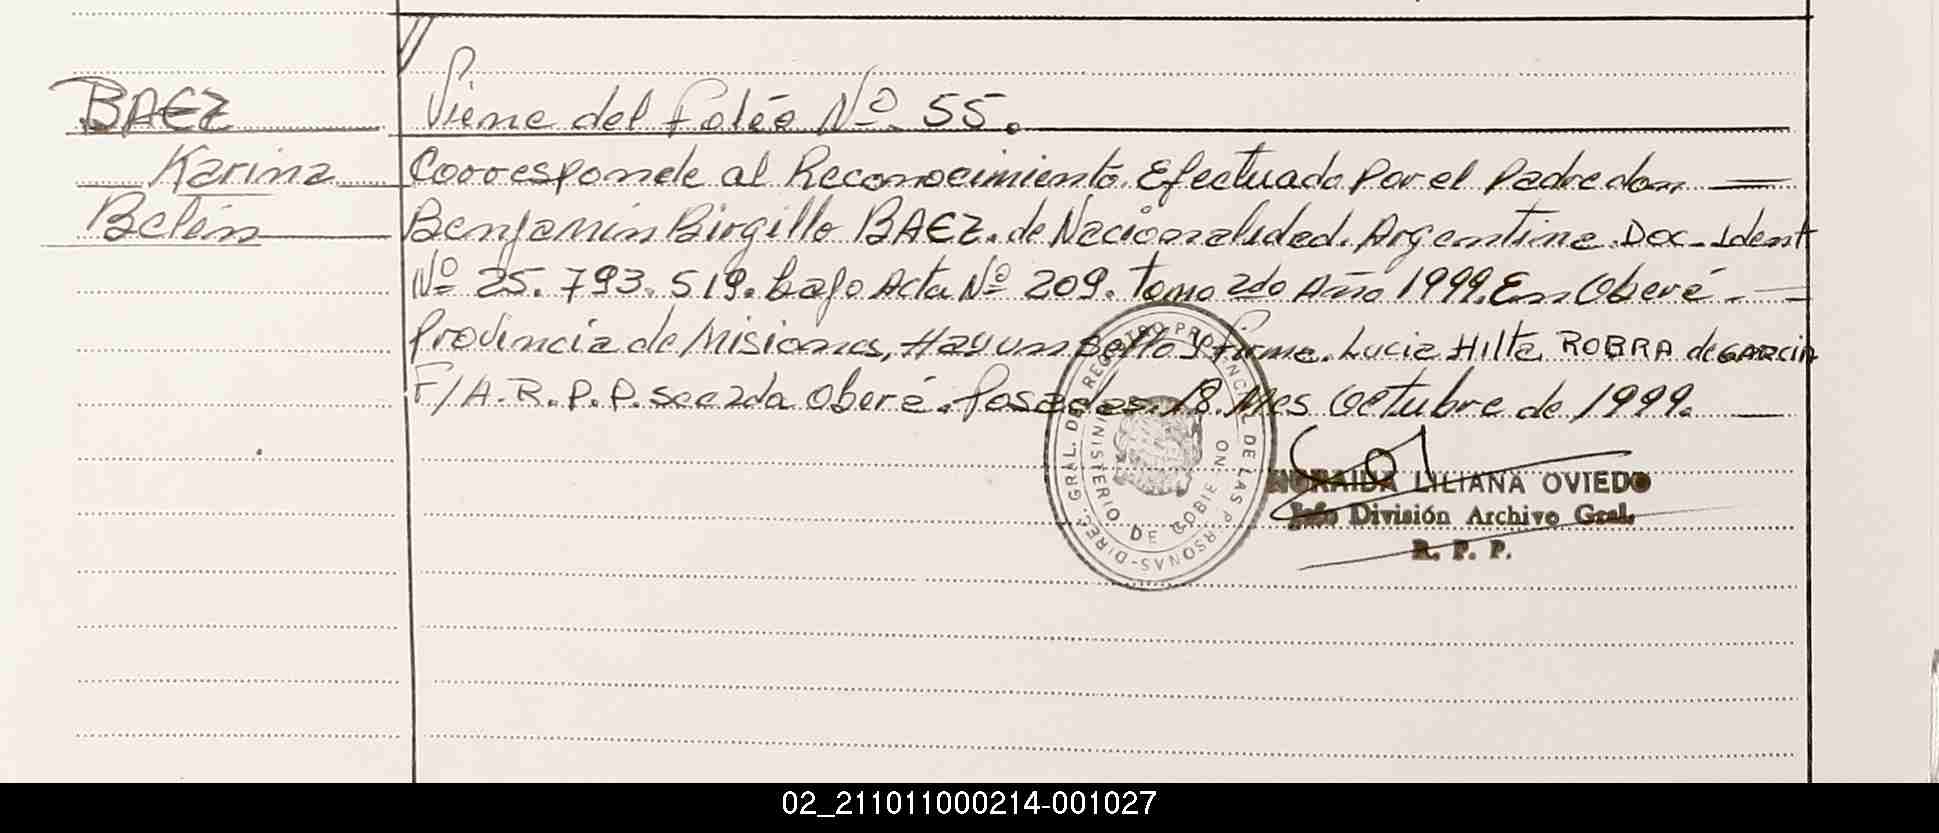 BAEZ
Karina
Belén
Viene del Folio Nº 55.
Corresponde al Reconocimiento. Efectuado Por el Padre don
Benjamin Birgillo BAEZ. de Nacionalidad. Argentina. Doc. Ident
Nº 25.793.519. bajo Acta Nº 209. Tomo 2do Año 1999. En Oberá.
Provincia de Misiones, Hay un Sello y firma. Lucia Hilta ROBRA de GARCIA
F/A.R.P.P. Secc 2da Oberá. Posadas. 18. Mes Octubre de 1999.
DIREC. GRAL. DEL REGISTRO PROVINCIAL DE LAS PERSONAS
MINISTERIO DE GOBIERNO
NORAIDA LILIANA OVIEDO
Jefe División Archivo Gral.
R. P. P.
02_211011000214-001027